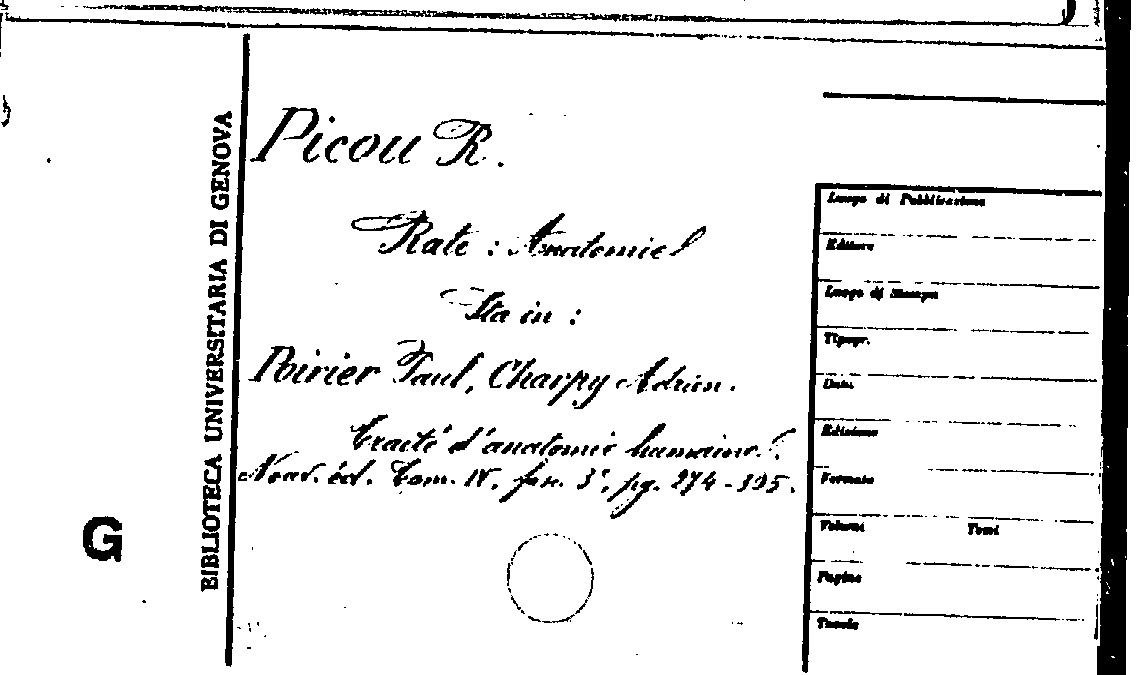 BIBLIOTECA UNIVERSITARIA DI GENOVA
G
Picou R.
Rate : Anatomie
Sta in :
Poirier Paul, Charpy Adrien.
Traité d'anatomie humaine.
Nouv. éd. Tom. IV, fasc. 3°, pg. 274-395.
Luogo di Pubblicazione
Editore
Luogo di Stampa
Tipogr.
Data
Edizione
Formato
Volumi Tomi
Pagine
Tavole